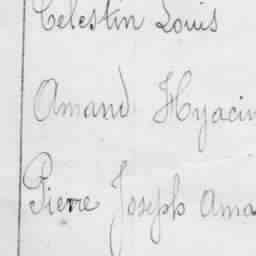 Celestin Louis
Amand Hyacin
Pierre Joseph Ama